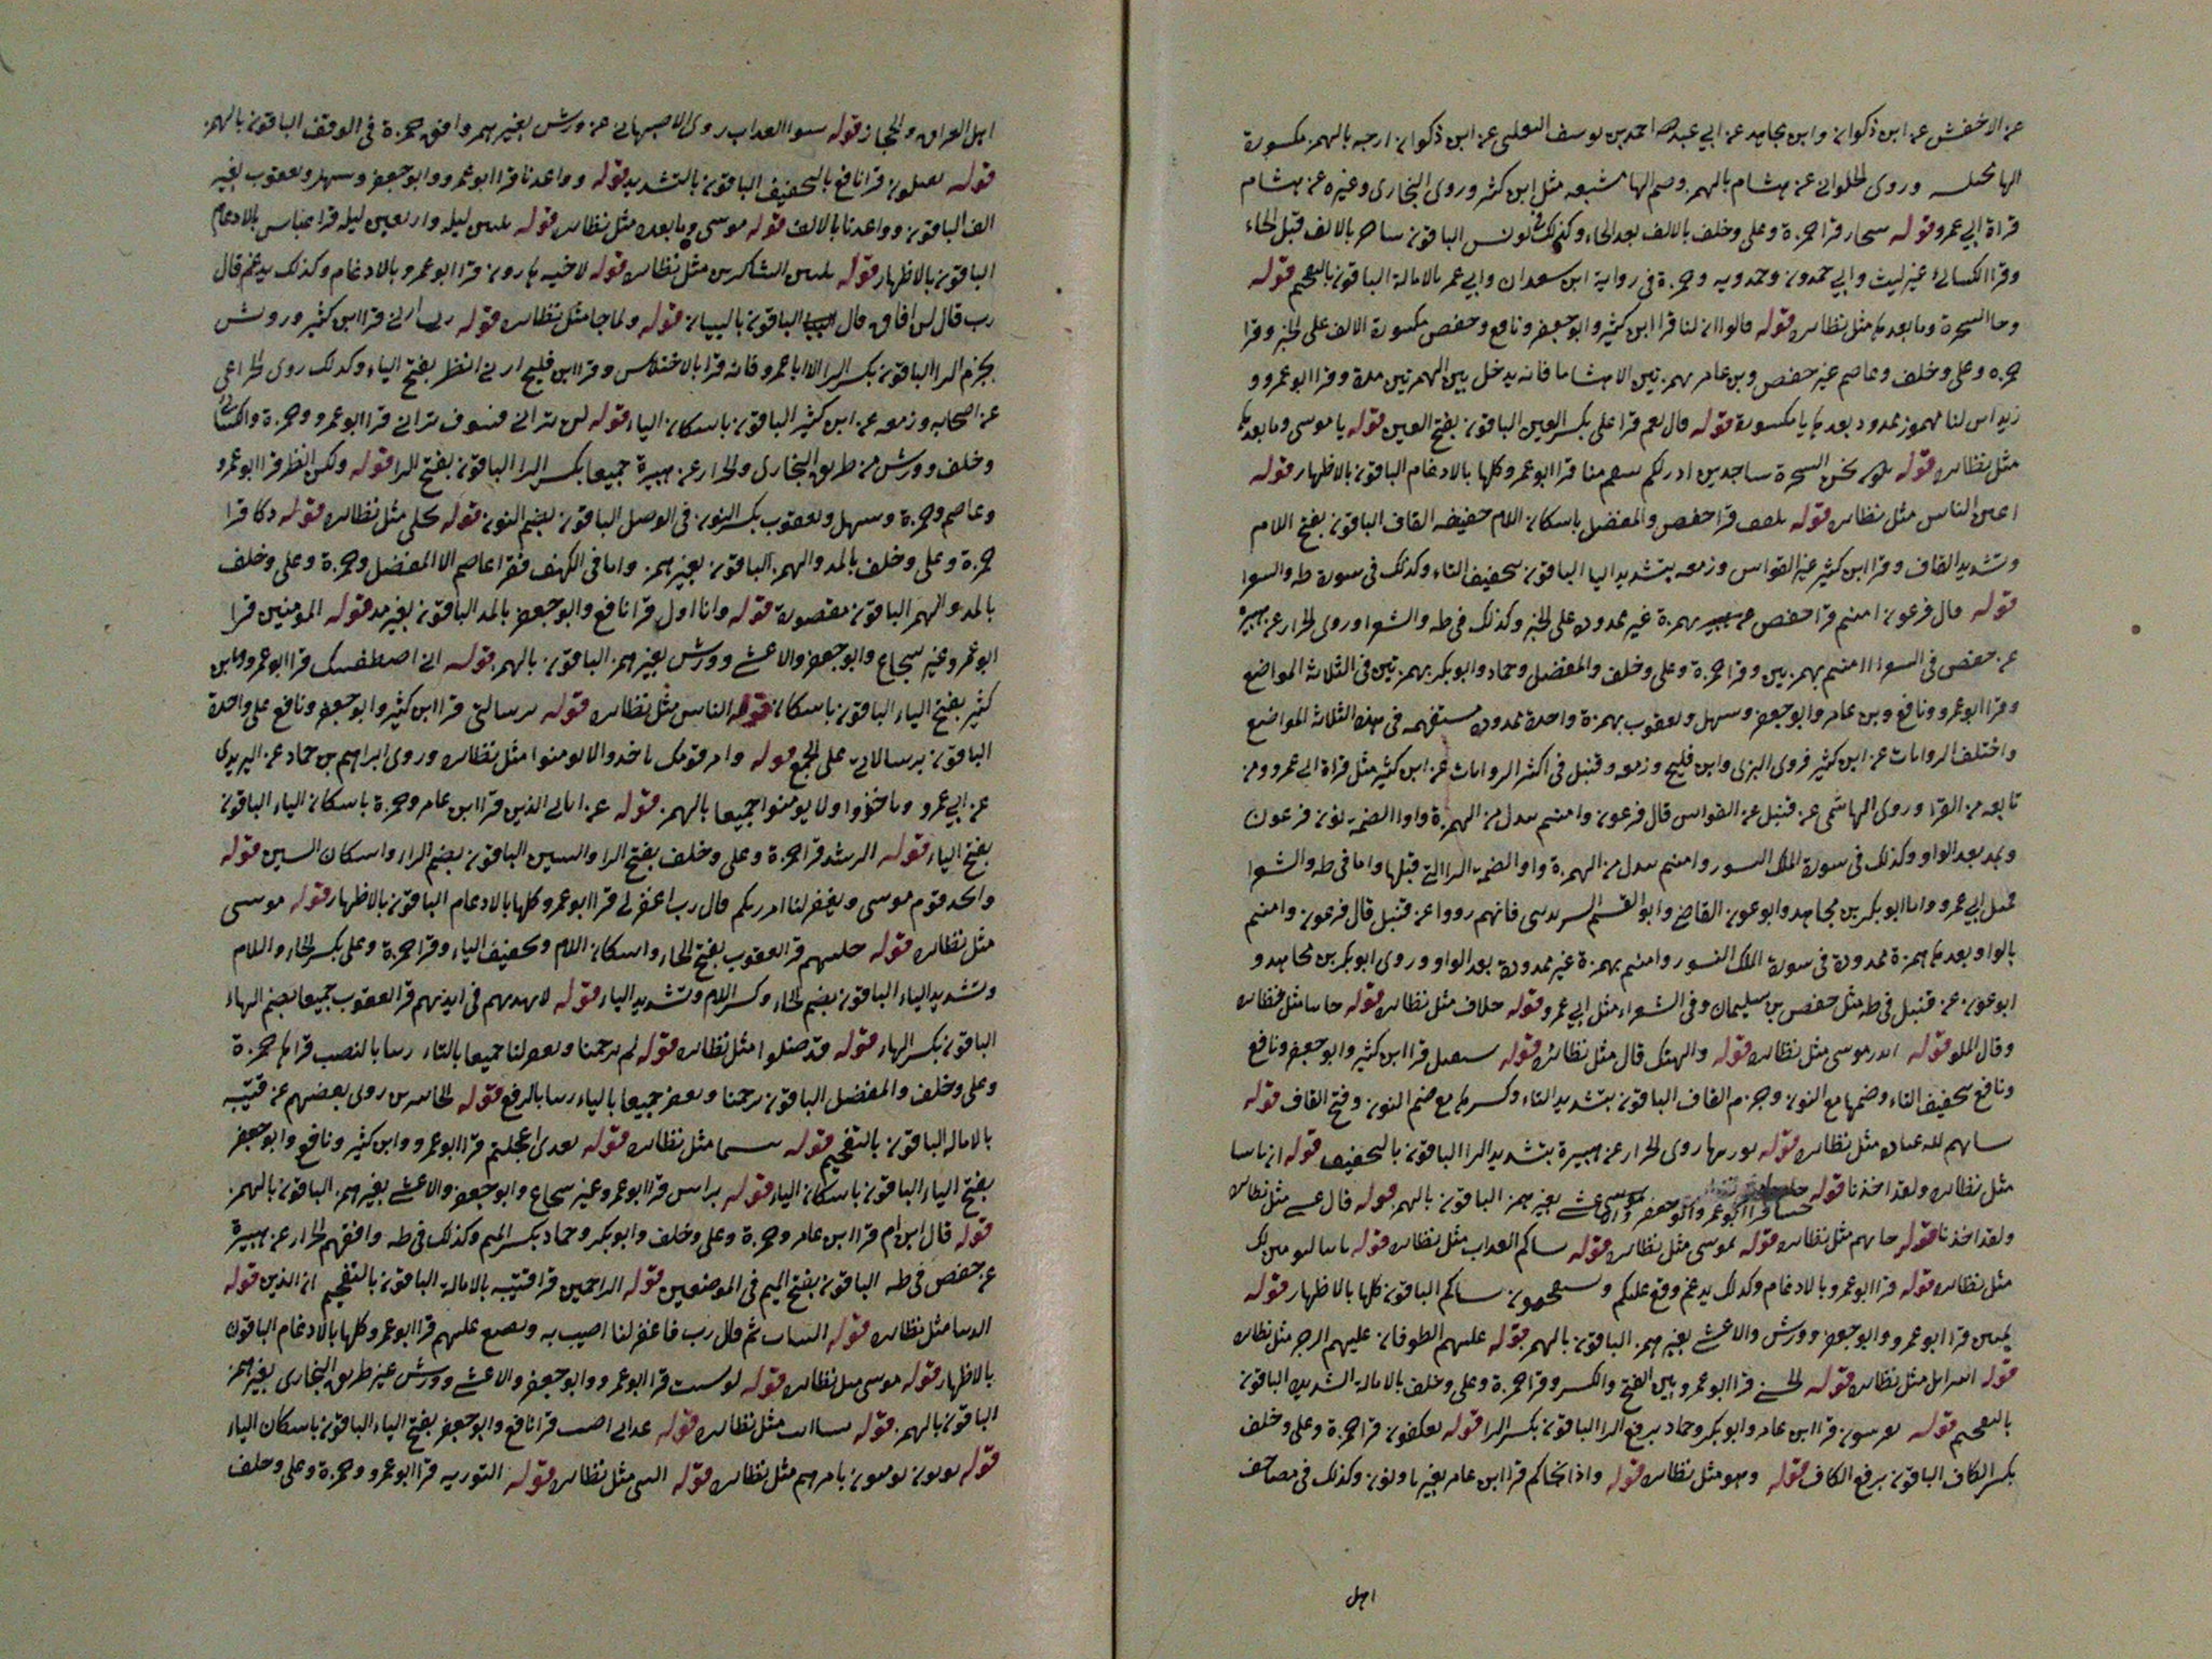 عن الاخفش عن ابن ذكوان وابن مجاهد عن ابي عبد الله احمد بن يوسف التغلبي عن ابن ذكوان ارجه بالهمز مكسورة
الها وروى الحلواني عن هشام بالهمز وضم الها مشبعه مثل ابن كثير وروى البخاري وغيره عن هشام
قراة ابي عمرو قوله سحار قرا حمزة وعلى وخلف بالالف بعد الحاء وكذلك في يونس الباقون ساحر بالالف قبل الحاء
وقرا الكسائي غير ليث وابي حمدون وحمدويه وحمزة في رواية ابن سعدان وابي عمر بالامالة الباقون بالتفخيم قوله
وجا السحرة وما بعدها مثل نظائره قوله قالوا ان لنا قرا ابن كثير وابو جعفر ونافع وحفص مكسورة الالف على الخبر وقرا
حمزه وعلى وخلف وعاصم غير حفص وبن عامر بهمزتين الا هشاما فانه يدخل بين الهمزتين مدة وقرا ابو عمرو و
زيد اين لنا مهموز ممدود بعدها يا مكسورة قوله قال نعم قرا على بكسر العين الباقون بفتح العين قوله يا موسى وما بعدها
مثل نظائره قوله نحن السحرة ساجدين اذن لكم تنقم منا قرا ابو عمرو كلها بالادغام الباقون بالاظهار قوله
اعين الناس مثل نظائره قوله تلقف قرا حفص والمفضل باسكان اللام خفيفه القاف الباقون بفتح اللام
وتشديد القاف وقرا ابن كثير غير القواس وزمعه بتشديد اليا الباقون بتخفيف التاء وكذلك في سورة طه والشعرا
قوله قال فرعون امنتم قرا حفص بهمزة غير ممدودة على الخبر وكذلك في طه والشعرا وروى الخزاز عن هبيره
عن حفص في الشعرا امنتم بهمزتين وقرا حمزة وعلى وخلف والمفضل وحماد وابو بكر بهمزتين في الثلاثة المواضع
وقرا ابو عمرو ونافع وبن عامر وابو جعفر وسهل ويعقوب بهمزة واحدة ممدودة مستفهمه في هذه الثلاثة المواضع
واختلف الروايات عن ابن كثير فروى البزى وابن فليح وزمعه وقنبل في اكثر الروايات عن ابن كثير مثل قراة ابي عمرو ومن
تابعه من القرا وروى الهاشمى عن قنبل عن القواس قال فرعون وامنتم يبدل من الهمزة واوا لضمة نون فرعون
ويمد بعد الواو وكذلك في سورة الملك النشور وامنتم يبدل من الهمزة واوا لضمة الرا التي قبلها واما في طه والشعرا
مثل ابي عمرو واما ابو بكر بن مجاهد وابو عون القاضي وابو القسم فانهم رووا عن قنبل قال فرعون وامنتم
بالواو بعدها همزة ممدودة في سورة الملك النشور وامنتم بهمزة غير ممدودة بعد الواو وروى ابو بكر بن مجاهد و
ابو عون عن قنبل في طه مثل حفص بن سليمان وفي الشعراء مثل ابي عمرو قوله خلاف مثل نظائره قوله جاتنا مثل نظائره
وقال الملا قوله اتذر موسى مثل نظائره قوله والهتك قال مثل نظائره قوله سنقتل قرا ابن كثير وابو جعفر ونافع
ونافع بتخفيف التاء وضمها مع النون وجزم القاف الباقون بتشديد التاء وكسرها مع ضم النون وفتح القاف قوله
مثل نظائره قوله يورثها روى الخزاز عن هبيرة بتشديد الرا الباقون بالتخفيف قوله
مثل نظائره ولقد اخذنا قوله جيتنا قرا ابو عمرو وابو جعفر والاعشى بغير همز الباقون بالهمز قوله قال عسى مثل نظائره
ولقد اخذنا قوله جاتهم مثل نظائره قوله بموسى مثل نظائره قوله العذاب مثل نظائره قوله
مثل نظائره قوله قرا ابو عمرو بالادغام وكذلك يدغم وقع عليكم الباقون كلها بالاظهار قوله
قرا ابو عمرو وابو جعفر وورش والاعشى بغير همز الباقون بالهمز قوله عليهم الطوفان عليهم الرجز مثل نظائره
قوله اسرايل مثل نظائره قوله الحسنى قرا ابو عمرو بين الفتح والكسر وقرا حمزة وعلى وخلف بالامالة الشديدة الباقون
بالتفخيم قوله يعرشون قرا ابن عامر وابو بكر وحماد برفع الرا الباقون بكسر الرا قوله يعكفون قرا حمزة وعلى وخلف
بكسر الكاف الباقون برفع الكاف قوله وهو مثل نظائره قوله واذ انجاكم قرا ابن عامر بغير يا ونون وكذلك في مصاحف
اهل
اهل العراق والحجاز قوله سوا العذاب روى الاصبهاني عن ورش بغير همز وافق حمزة في الوقف الباقون بالهمز
قوله يقتلون قرا نافع بالتخفيف الباقون بالتشديد قوله وواعدنا قرا ابو عمرو وابو جعفر وسهل ويعقوب بغير
الف الباقون وواعدنا بالالف قوله موسى وما بعده مثل نظائره قوله ثلثين ليله واربعين ليله قرا عباس بالادغام
الباقون بالاظهار قوله الشاكرين مثل نظائره قوله لاخيه هارون قرا ابو عمرو بالادغام وكذلك يدغم قال
رب قال لن افاق قال الباقون بالبيان قوله ولما جا مثل نظائره قوله رب ارني قرا ابن كثير وروىش
بجزم الرا الباقون بكسر الرا الا ابا عمرو فانه قرا بالاختلاس وقرا ابن فليح ارني انظر بفتح الياء وكذلك روى الخزاعى
عن اصحابه وزمعه عن ابن كثير الباقون باسكان الياء قوله لن تراني فسوف تراني قرا ابو عمرو وحمزة والكسائى
وخلف وورش من طريق البخارى والخزاز عن هبيرة جميعا بكسر الرا الباقون بفتح الرا قوله ولكن انظر قرا ابو عمرو
وعاصم وحمزة وسهل ويعقوب بكسر النون في الوصل الباقون بضم النون قوله تجلى مثل نظائره قوله دكا قرا
حمزة وعلى وخلف بالمد والهمز الباقون بغير همز واما في الكهف فقرا عاصم الا المفضل وحمزة وعلى وخلف
بالمد والهمز الباقون مقصورة قوله وانا اول قرا نافع وابو جعفر بالمد الباقون بغير مد قوله المومنين قرا
ابو عمرو غير شجاع وابو جعفر والاعشى وورش بغير همز الباقون بالهمز قوله اني اصطفيتك قرا ابو عمرو وابن
كثير بفتح الياء الباقون باسكان قوله الناس مثل نظائره قوله برسالتي قرا ابن كثير وابو جعفر ونافع على واحدة
الباقون برسالاتي على الجمع قوله وامر قومك ياخذوا لا يومنوا مثل نظائره وروى ابراهيم بن حماد عن اليزيدى
عن ابي عمرو وياخذوا ولا يومنوا جميعا بالهمز قوله عن اياتى الذين قرا ابن عامر وحمزة باسكان الياء الباقون
بفتح الياء قوله الرشد قرا حمزة وعلى وخلف بفتح الرا والشين الباقون بضم الراء واسكان الشين قوله
واتخذ قوم موسى ويغفر لنا امر ربكم قال رب اغفر لى قرا ابو عمرو كلها بالادغام الباقون بالاظهار قوله موسى
مثل نظائره قوله حليهم قرا يعقوب بفتح الحاء واسكان اللام وتخفيف الياء وقرا حمزة وعلى بكسر الحاء واللام
وتشديد الياء الباقون بضم الحاء وكسر اللام وتشديد الياء قوله لا يهديهم في ايديهم قرا يعقوب جميعا بضم الهاء
الباقون بكسر الهاء قوله قد ضلوا مثل نظائره قوله لم ترحمنا وتغفر لنا جميعا بالتاء ربنا بالنصب قراها حمزة
وعلى وخلف والمفضل الباقون يرحمنا ويغفر جميعا بالياء ربنا بالرفع قوله الخاسرين روى بعضهم عن قتيبه
بالاماله الباقون بالتفخيم قوله مثل نظائره قوله بعدى اعجلتم قرا ابو عمرو وابن كثير ونافع وابو جعفر
بفتح الياء الباقون باسكان الياء قوله براس قرا ابو عمرو غير شجاع وابو جعفر والاعشى بغير همز الباقون بالهمز
قوله قال ابن ام قرا ابن عامر وحمزة وعلى وخلف وابو بكر وحماد بكسر الميم وكذلك في طه وافقهم الخزاز عن هبيرة
عن حفص في طه الباقون بفتح الميم في الموضعين قوله الراحمين قرا قتيبه بالامالة الباقون بالتفخيم ان الذين قوله
الدنيا مثل نظائره قوله السيات ثم قال رب فاغفر لنا اصيب به ويضع عليهم قرا ابو عمرو كلها بالادغام الباقون
بالاظهار قوله موسى مثل نظائره قوله لو شيت قرا ابو عمرو وابو جعفر والاعشى وورش غير طريق البخارى بغير همز
الباقون بالهمز قوله مثل نظائره قوله عذابى اصيب قرا نافع وابو جعفر بفتح الياء الباقون باسكان الياء
قوله يومنون يامرهم مثل نظائره قوله النبى مثل نظائره قوله التوريه قرا ابو عمرو وحمزة وعلى وخلف